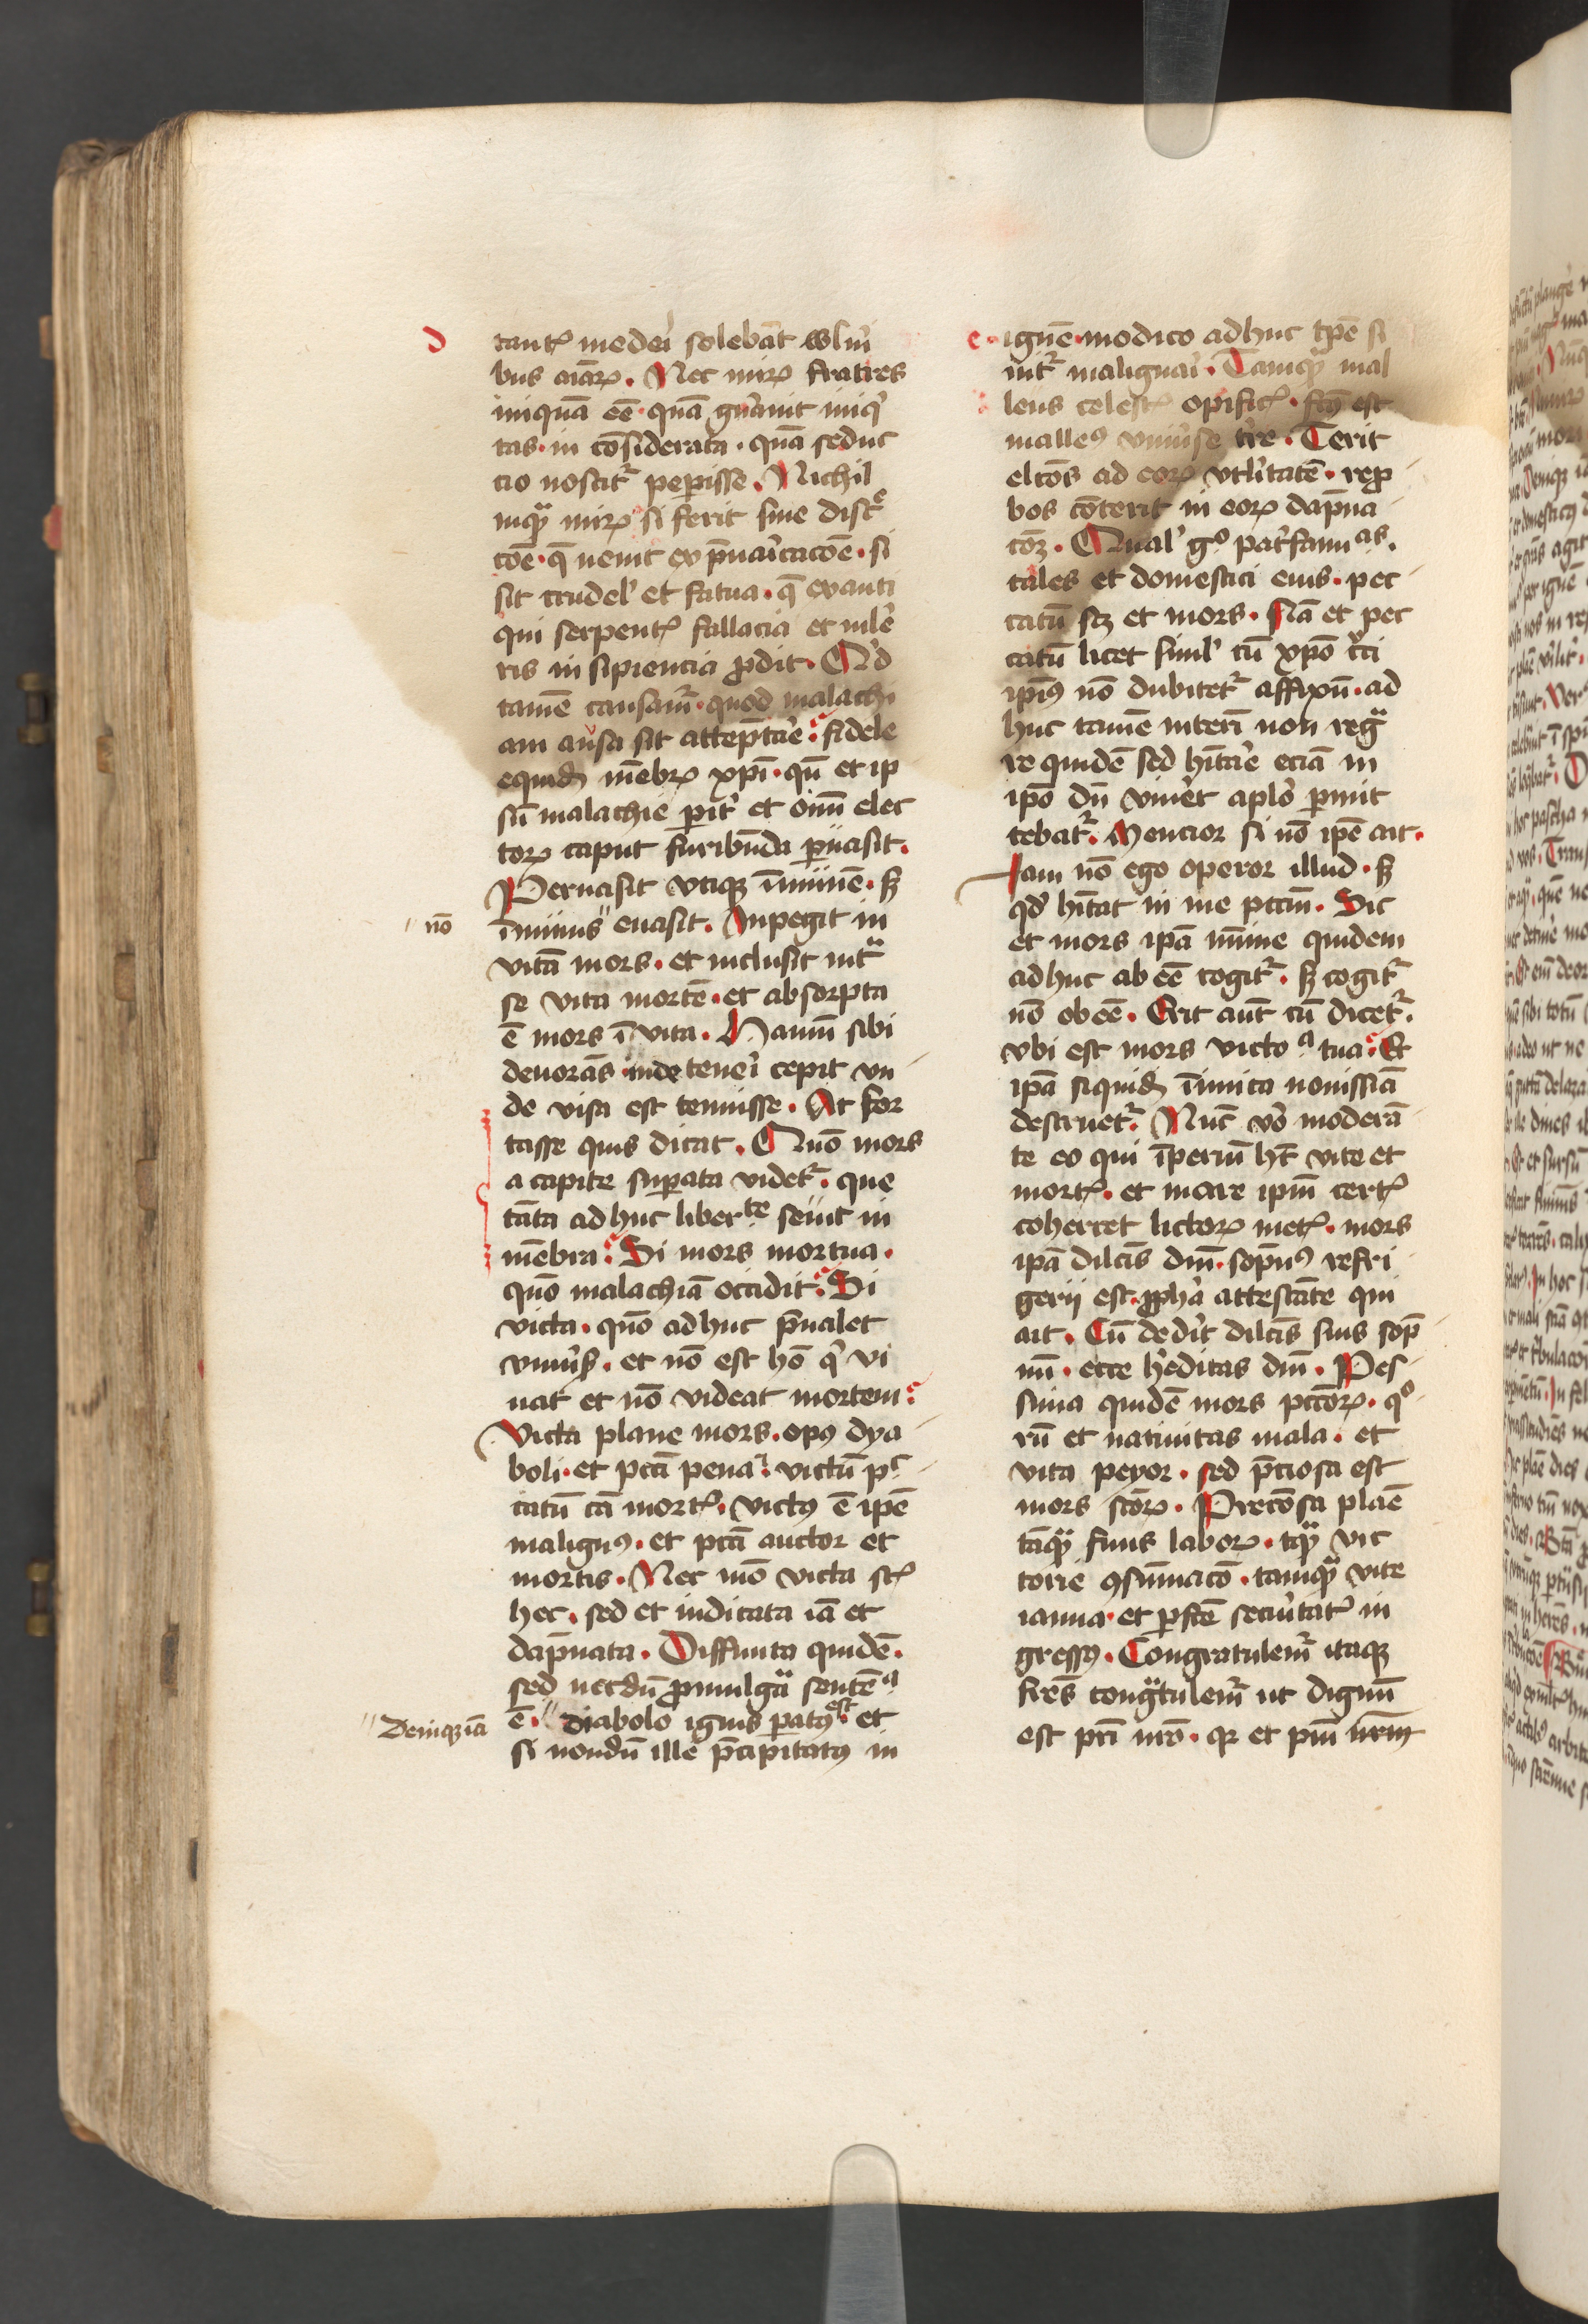 d
tantꝭ mederi solebāt wln̄i
bus aīaꝝ. Nec miꝝ fratres
iniquā eē quam gn̄auit iniqͥ
tas. in cōsiderata. quā seduc
cio noscitᷣ peꝑisse. Nichil
inqͣ miꝝ si ferit sine discͤ
cōe. q̄ uenit ex p̄uaricacōe. si
sit crudelʼ et fatua. q̄ ex anti
qui serpentꝭ fallacia et mlē
ris in sipiencia ꝓdit. Qͥd
tamē causamᷣ. quod malachi
am ausa sit attēptare. fidele
equidē mēbꝝ xp̄i. qn̄ et ip
sū malachie pīt et oīm elec
toꝝ caput furibūda ꝑuasit.
Peruasit vtiqꝫ īmūnē. sꝫ
nō
īmūnis euasit. Inpegit in
vitā mors. et inclusit intͣ
se vita mortē. et absorpta
ē mors ī vita. Hamū sibi
deuorās inde teneri cepit vn
de visa est tenuisse. At for
tasse quis dicat. Quō mors
a capite suꝑata videtᷣ. que
tāta adhuc liberte seuit in
mēbra. Si mors mortua.
quō malachiā occidit. Si
victa. quō adhuc p̄ualet
vniūsꝭ. et nō est hō qͥ vi
uat et nō videat mortem.
Victa plane mors. opꝰ dya
boli. et pctī pena. victū pc
catū cā mortꝭ. Victꝰ ē ipē
malignꝰ. et pctī auctor et
mortis. Nec mō victa st̄ꝭ
hec. sed et iudicata iā et
dāpnata. Diffinita quidē.
sed necdū ꝓmulgͣ sentēª
Deniqꝫ iā
ē. diabolo ignis ꝑatꝰ est. et
si nondū ille p̄cipitatꝰ in
e
ignē. modico adhuc tꝑe si
nitᷣ malignari. Tamqͣ mal
leus celestꝭ opificꝭ. fc̄ꝰ est
malleꝰ vniūse tr̄e. Terit
elcōs ad eoꝝ vtl̄itatē. repꝓ
bos cōterit in eoꝝ dāpna
cōꝫ. Qualʼ gͦ patʼfamias.
tales et domestici eius. pec
catū scꝫ et mors. Nā et pec
catū licet simlʼ cū xp̄o cͥci
ipīus nō dubitetᷣ affixū. ad
huc tamē interī non regͣ
re quidē sed hītare eciā in
ipō dū viuēt aplō ꝑmit
tebatᷣ. Mencior si nō ipē ait.
Iam nō ego operor illud. sꝫ
qd̄ hītat in me pctīm. Sic
et mors ipā mīme quidem
adhuc ab eē cogitᷣ. sꝫ cogitᷣ
nō obeē. Erit aūt cū dicetᷣ.
vbi est mors victoª tua. Et
ipā siquidē īimica nouissīa
destruetᷣ. Nūc vō moderā
te eo qui īperiū hꝫ vite et
mortꝭ. et mare ipm̄ certꝭ
coherrcet lictoꝝ metꝭ. mors
ipā dilc̄is dn̄i. sopn̄ꝰ refri
gerii est. ꝓphā attestāte qui
ait. Cū dedīt dilc̄is suis sop̄
nū. ecce hēditas dn̄i. Pes
sima quidē mors pccōꝝ. qͦ
rū et natiuitas mala. et
vita peyor. sed p̄ciosa est
mors scōꝝ. Preciosa plāē
tāqͣ finis laboꝝ. tqͣ vic
torie ꝯsūmacō. tamqͣ vite
ianua. et ꝑfcē secūitatꝭ in
gressꝰ. Congratulemᷣ itaqꝫ
frēs congͣtulemᷣ ut dignū
est pr̄i nr̄o. qꝛ et piū nr̄m